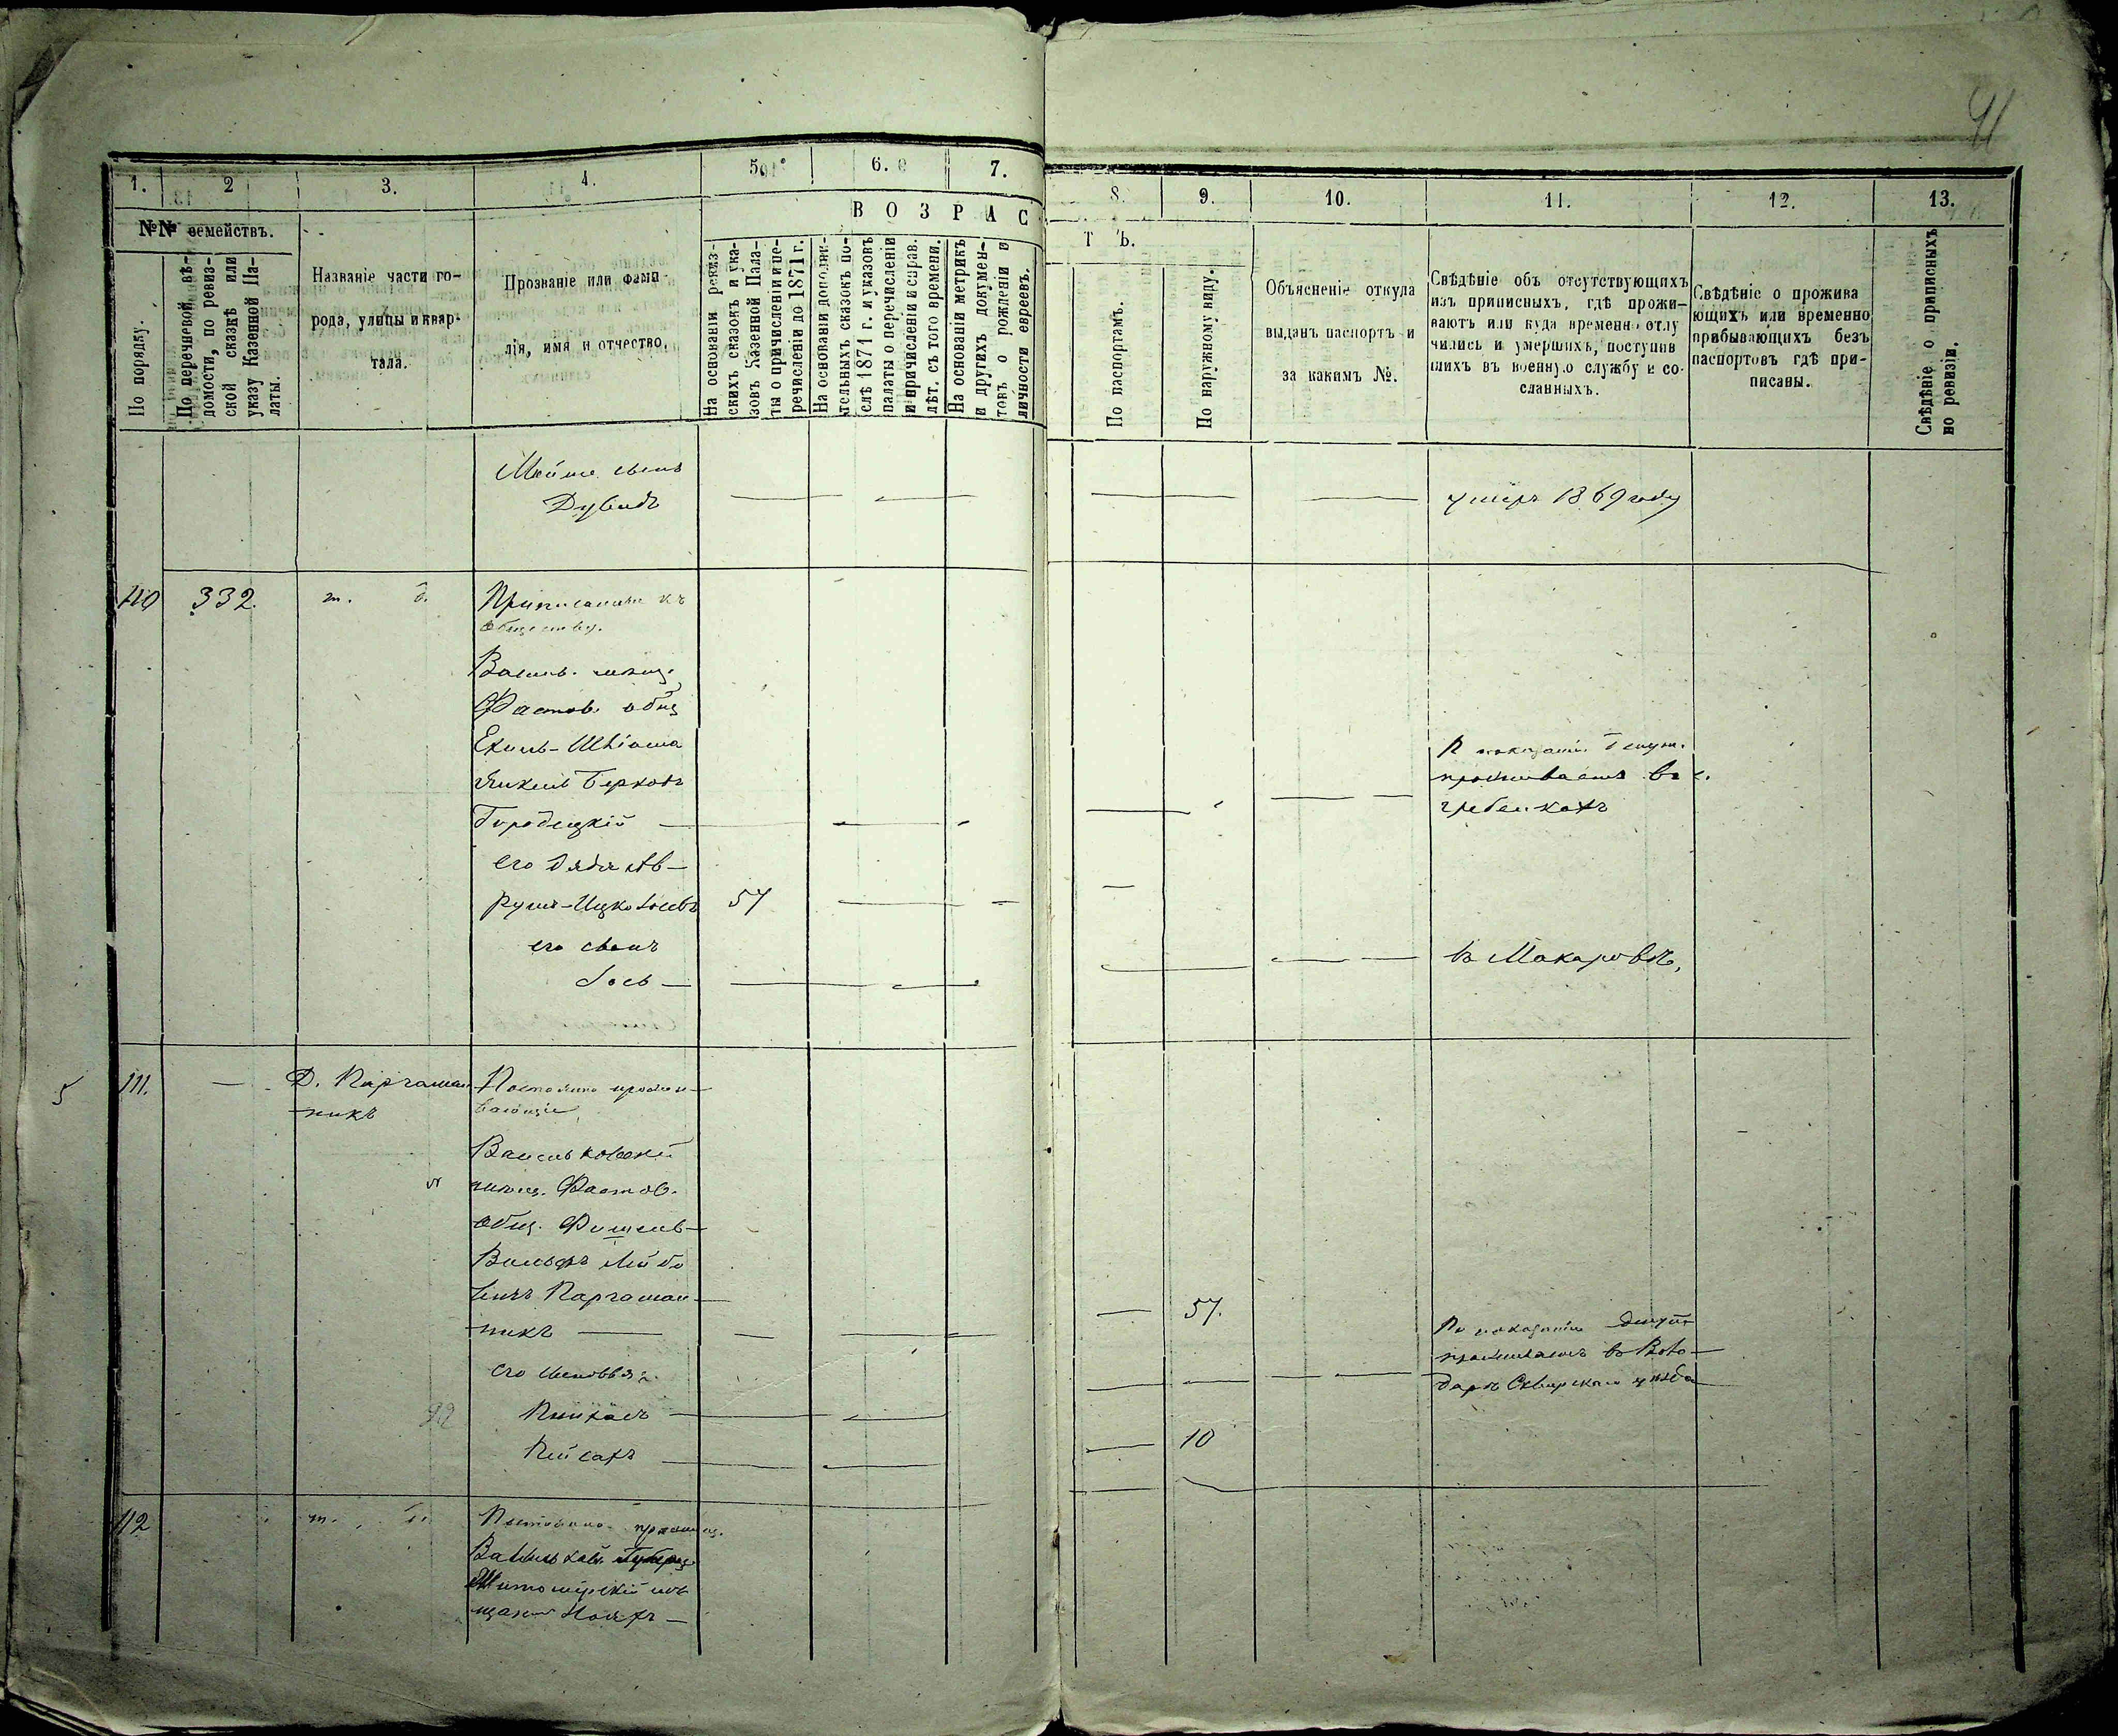 41
1.
2
3.
4.
5
6.
7.
8.
9.
10.
11.
12.
13.
№№ семействъ.
ВОЗРАС
ТЪ.
По порядку.
По перечневой вѣ-
домости, по ревиз-
ской сказкѣ или
указу Казенной Па-
латы.
Названіе части го-
рода, улицы и квар-
тала.
Прозваніе или фами-
лія, имя и отчество.
На основаніи ревиз-
скихъ сказокъ и ука-
зовъ Казенной Пала-
ты о причисленіи и пе-
речисленіи до 1871 г.
На основаніи дополни-
тельныхъ сказокъ по-
слѣ 1871 г. и указовъ
палаты о перечисленіи
и причисленіи и справ.
лѣт. съ того времени.
На основаніи метрикъ
и другихъ докумен-
товъ о рожденіи и
личности евреевъ.
По паспортамъ.
По наружному виду.
Объясненіе откуда
выданъ паспортъ и
за какимъ №.
Свѣдѣніе объ отсутствующихъ
изъ приписныхъ, гдѣ прожи-
ваютъ или куда временно отлу
чились и умершихъ, поступив
шихъ въ военную службу и со-
сланныхъ.
Свѣдѣніе о прожива
ющихъ или временно
прибывающихъ безъ
паспортовъ гдѣ при-
писаны.
Свѣдѣніе о приписныхъ
но ревизіи.
Мойше сынъ
Дувидъ
умеръ 1869 году
110
332.
т. д.
Приписанные къ
обществу.
Васильк. мѣщ.
Фастов. общ
Ехиль-
Янкель Берковъ
Городецкій
По показанію депут.
проживаетъ въ с.
Гребенкахъ
его дядя Ав-
румъ-Ицко
57
его сынъ
Іось
въ Макаровѣ,
5
111.
Д. Паргаман
никъ
Постоянно прожи-
вающіе
Васильковскій
мѣщ. Фастов.
общ. Фишель-
Вольфъ Лейбо
вичъ Паргаман-
никъ
57.
По показанію депут
проживаетъ въ Воло-
даркѣ Сквирскаго уѣзда
его сыновья:
92
Пинхасъ
Пейсахъ
10
112
т. д.
Постоянно прожив.
Житомірскій мѣ
щанинъ